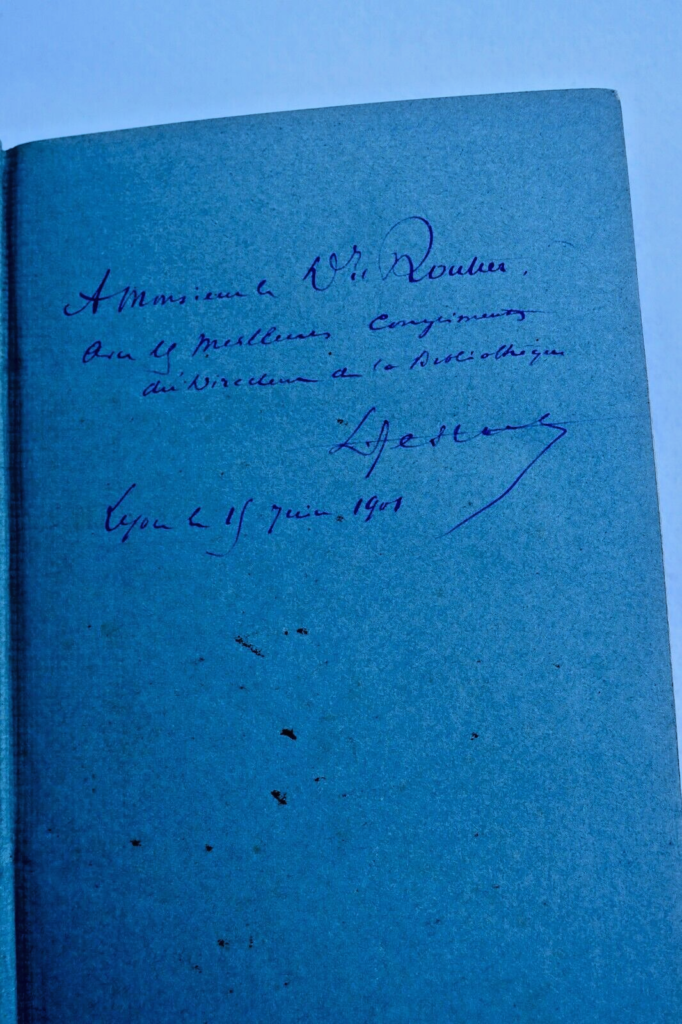 A Monsieur le Dr. Rouher.
Avec les meilleurs Compliments
du Directeur de la Bibliothèque
Lyon le 15 juin 1901